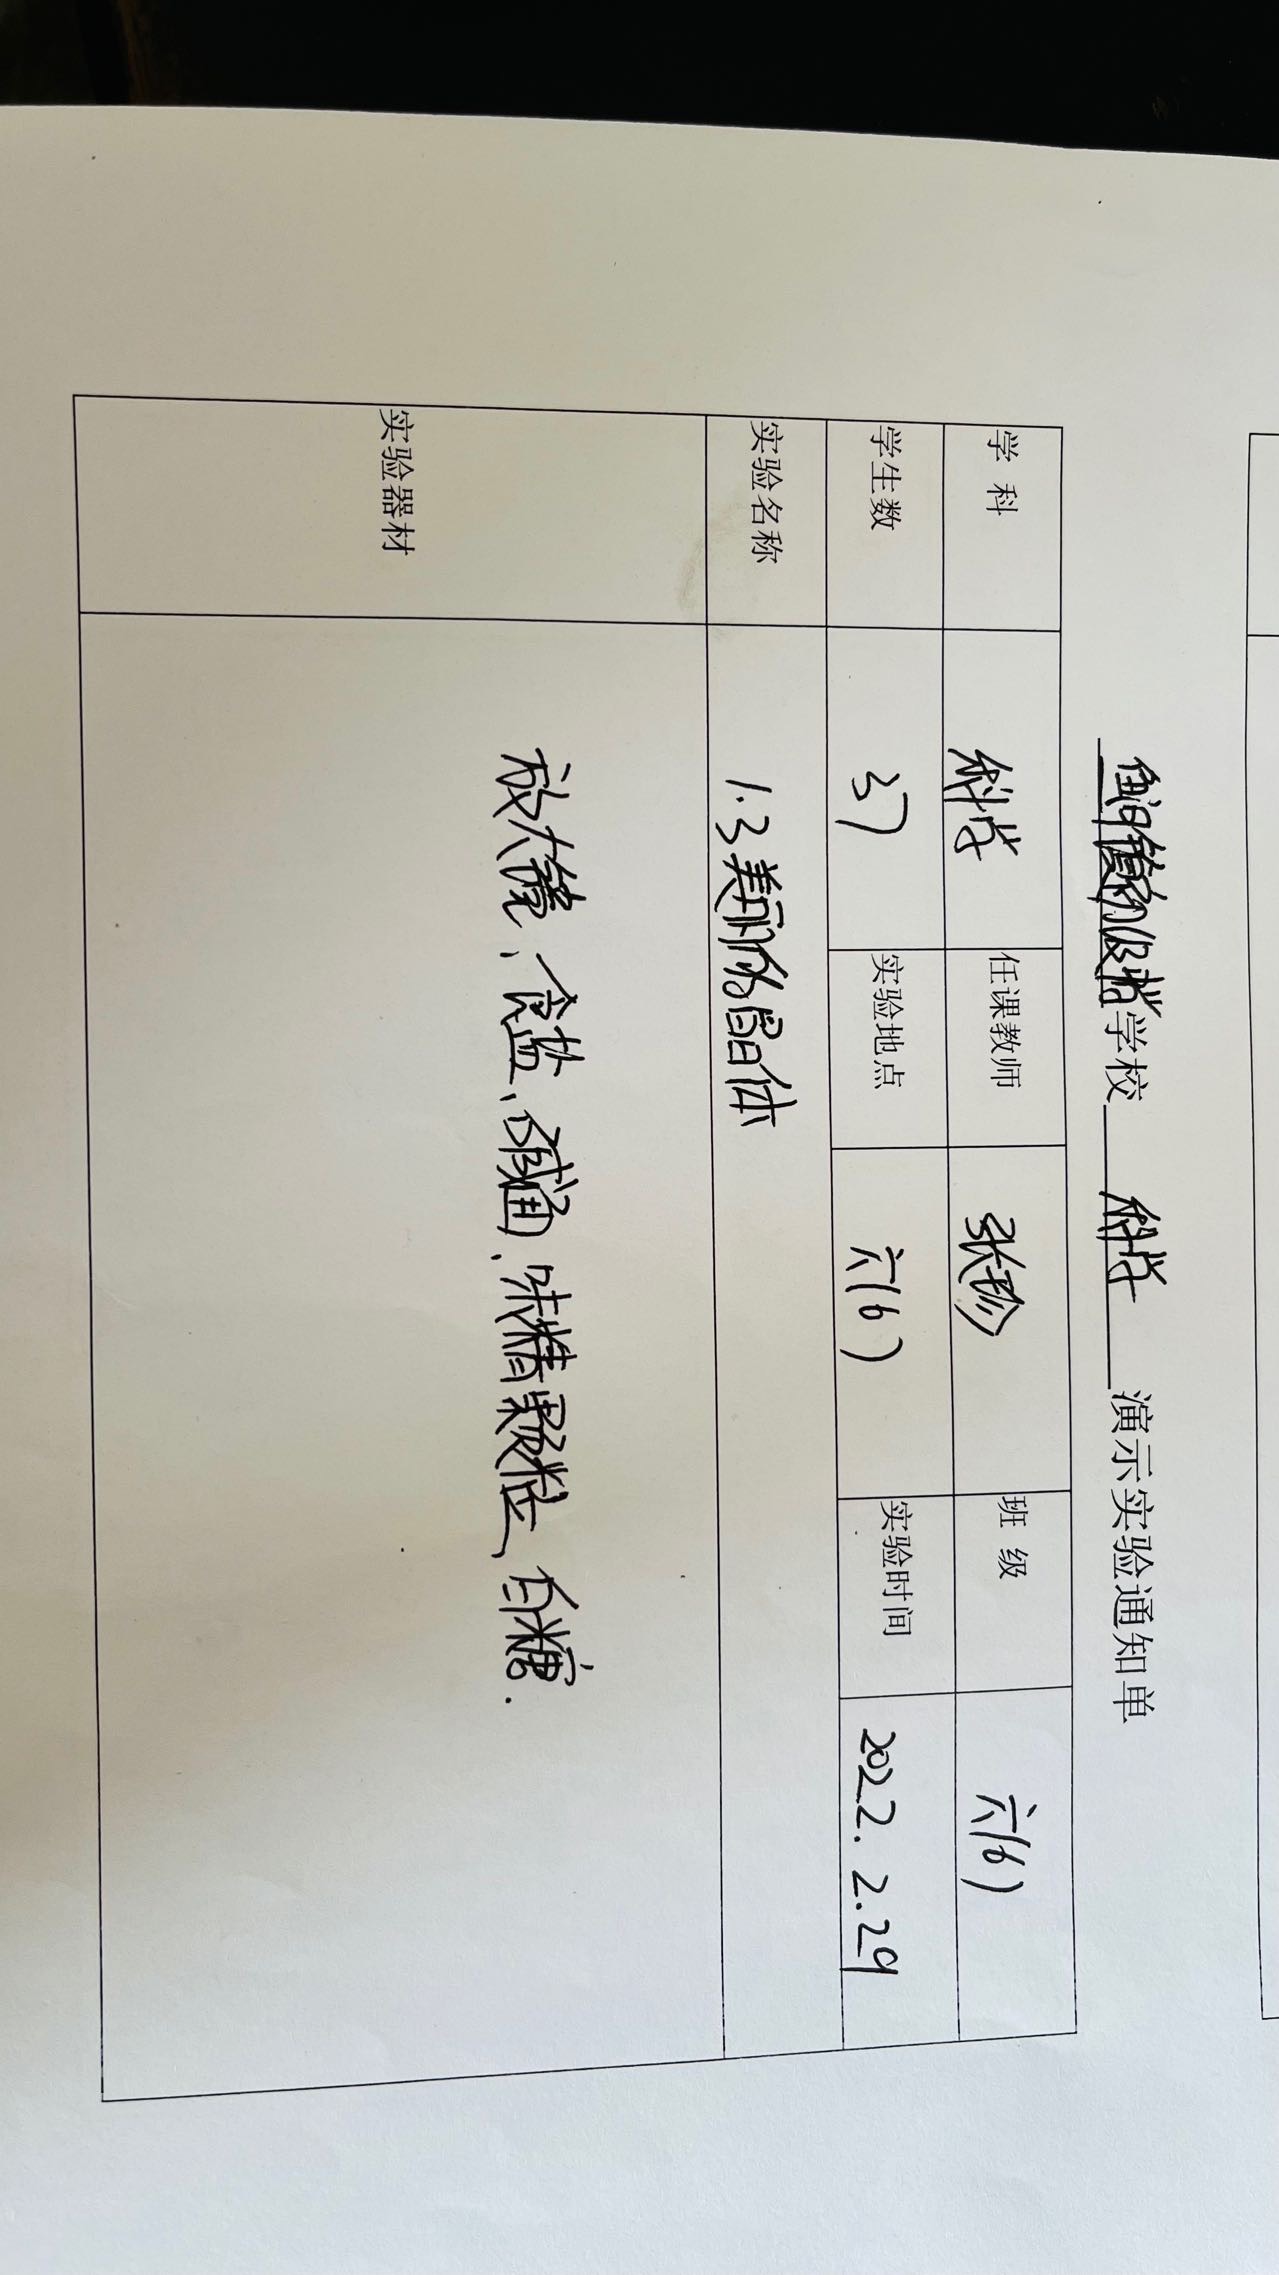 学校 科学 演示实验通知单
学 科 科学 任课教师 张珍 班 级 六(6)
学生数 37 实验地点 六(6) 实验时间 2022.2.29
实验名称 1.3美丽的晶体
实验器材 放大镜、食盐、碱面、味精颗粒、白糖.